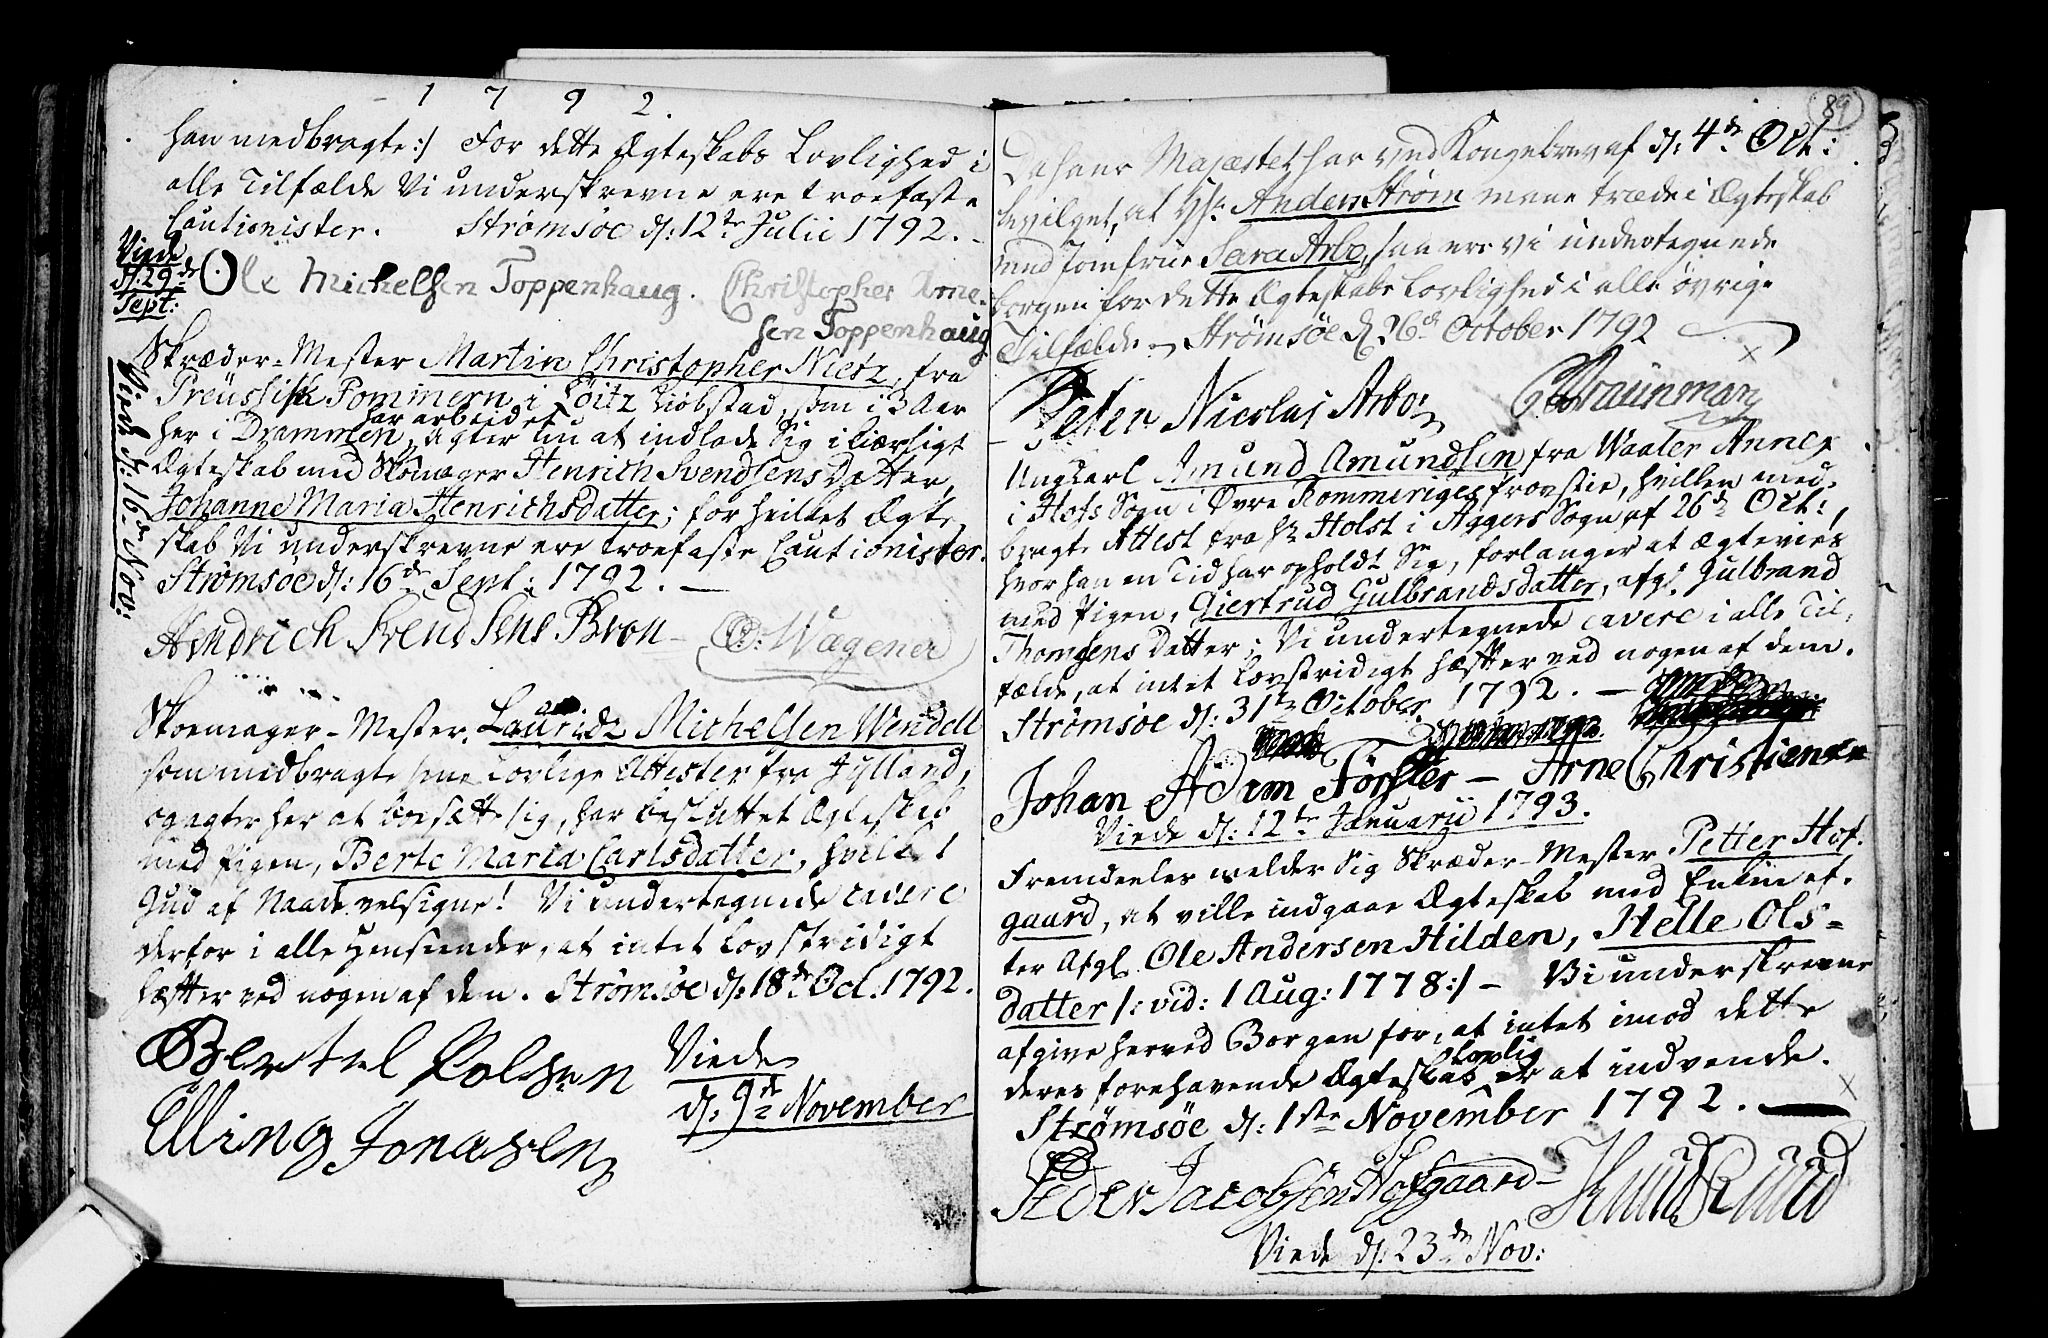 1 7 9 2.
han medbragte :/ For dette Ægteskabs Lovlighed i
alle Tilfælde Vi underskrevne ere troefaste
Cautionister. Strømsøe d: 12te Julii 1792.
Viede
d: 29de
Sept:
Ole Michelsen Toppenhaug. Christopher Arne-
sen Toppenhaug
Skræder-Mester Martin Christopher Nietz, fra
Preussisk Pommern i Löitz Kiøbstad, som i 3 Aar
har arbeidet
her i Drammen, agter nu at indlade Sig i kiærligt
Ægteskab med Skomager Henrich Svendsens Datter,
Johanne Maria Henrichsdatter; for hvilket Ægte-
skab Vi underskrevne ere troefaste Cautionister.
Strømsøe d: 16de Sept: 1792.
Viede d: 16de Nov:
Hendrich Svend Sens Bron
Wagener
Skoemager-Mester, Lauridz Michelsen Wendell
som medbragte sine lovlige Attester fra Jylland,
og agter her at boesætte sig, har besluttet Ægteskab
med Pigen, Berte Maria Carlsdatter, hvilket
Gud af Naade velsigne! Vi undertegnede cavere
derfor i alle Henseender, at intet lovstridigt
hæfter ved nogen af dem. Strømsøe d: 18de Oct. 1792.
Bertel Polsen
Elling Jonasen
Viede
d: 9de November
89
Da hans Majestet har ved Kongebrev af d: 4de Oct:
bevilget, at Hr. Anders Strøm maae træde i Ægteskab
med Jomfrue Sara Arbo, saa ere vi undertegnede
borgen for dette Ægteskabs Lovlighed i alle øvrige
Tilfælde - Strømsøe d 26de October 1792
Peter Nicolas Arbo Braunman
Ungkarl Amund Amundsen fra Waaler Annex
i Hofs Sogn i Øvre Rommeriges Provstie, hvilken med-
bragte Attest fra Hr Holst i Aggers Sogn af 26de Oct:,
hvor han en Tid har opholdt Sig, forlanger at Ægtevies
med Pigen, Giertrud Gulbrandsdatter, afg: Gulbrand
Thomsens Datter; Vi undertegnede cavere i alle Til-
fælde, at intet lovstridigt hæfter ved nogen af dem.
Strømsøe d: 31te October 1792.
Johan Adam Förster - Arne Christiensen
Viede d: 12te Januarii 1793.
Fremdeeles melder Sig Skræder-Mester Petter Hof-
gaard, at ville indgaae Ægteskab med Enken ef-
ter Afgl. Ole Andersen Hilden, Helle Ols-
datter /: vid: 1 Aug: 1778 :/ - Vi underskrevne
afgive herved Borgen for, at intet imod dette
lovlig
deres forehavende Ægteskab er at indvende.
Strømsøe d: 1ste November 1792.
Peder Jacobsen Hofgaard - Knud Ruud
Viede d: 23de Nov: